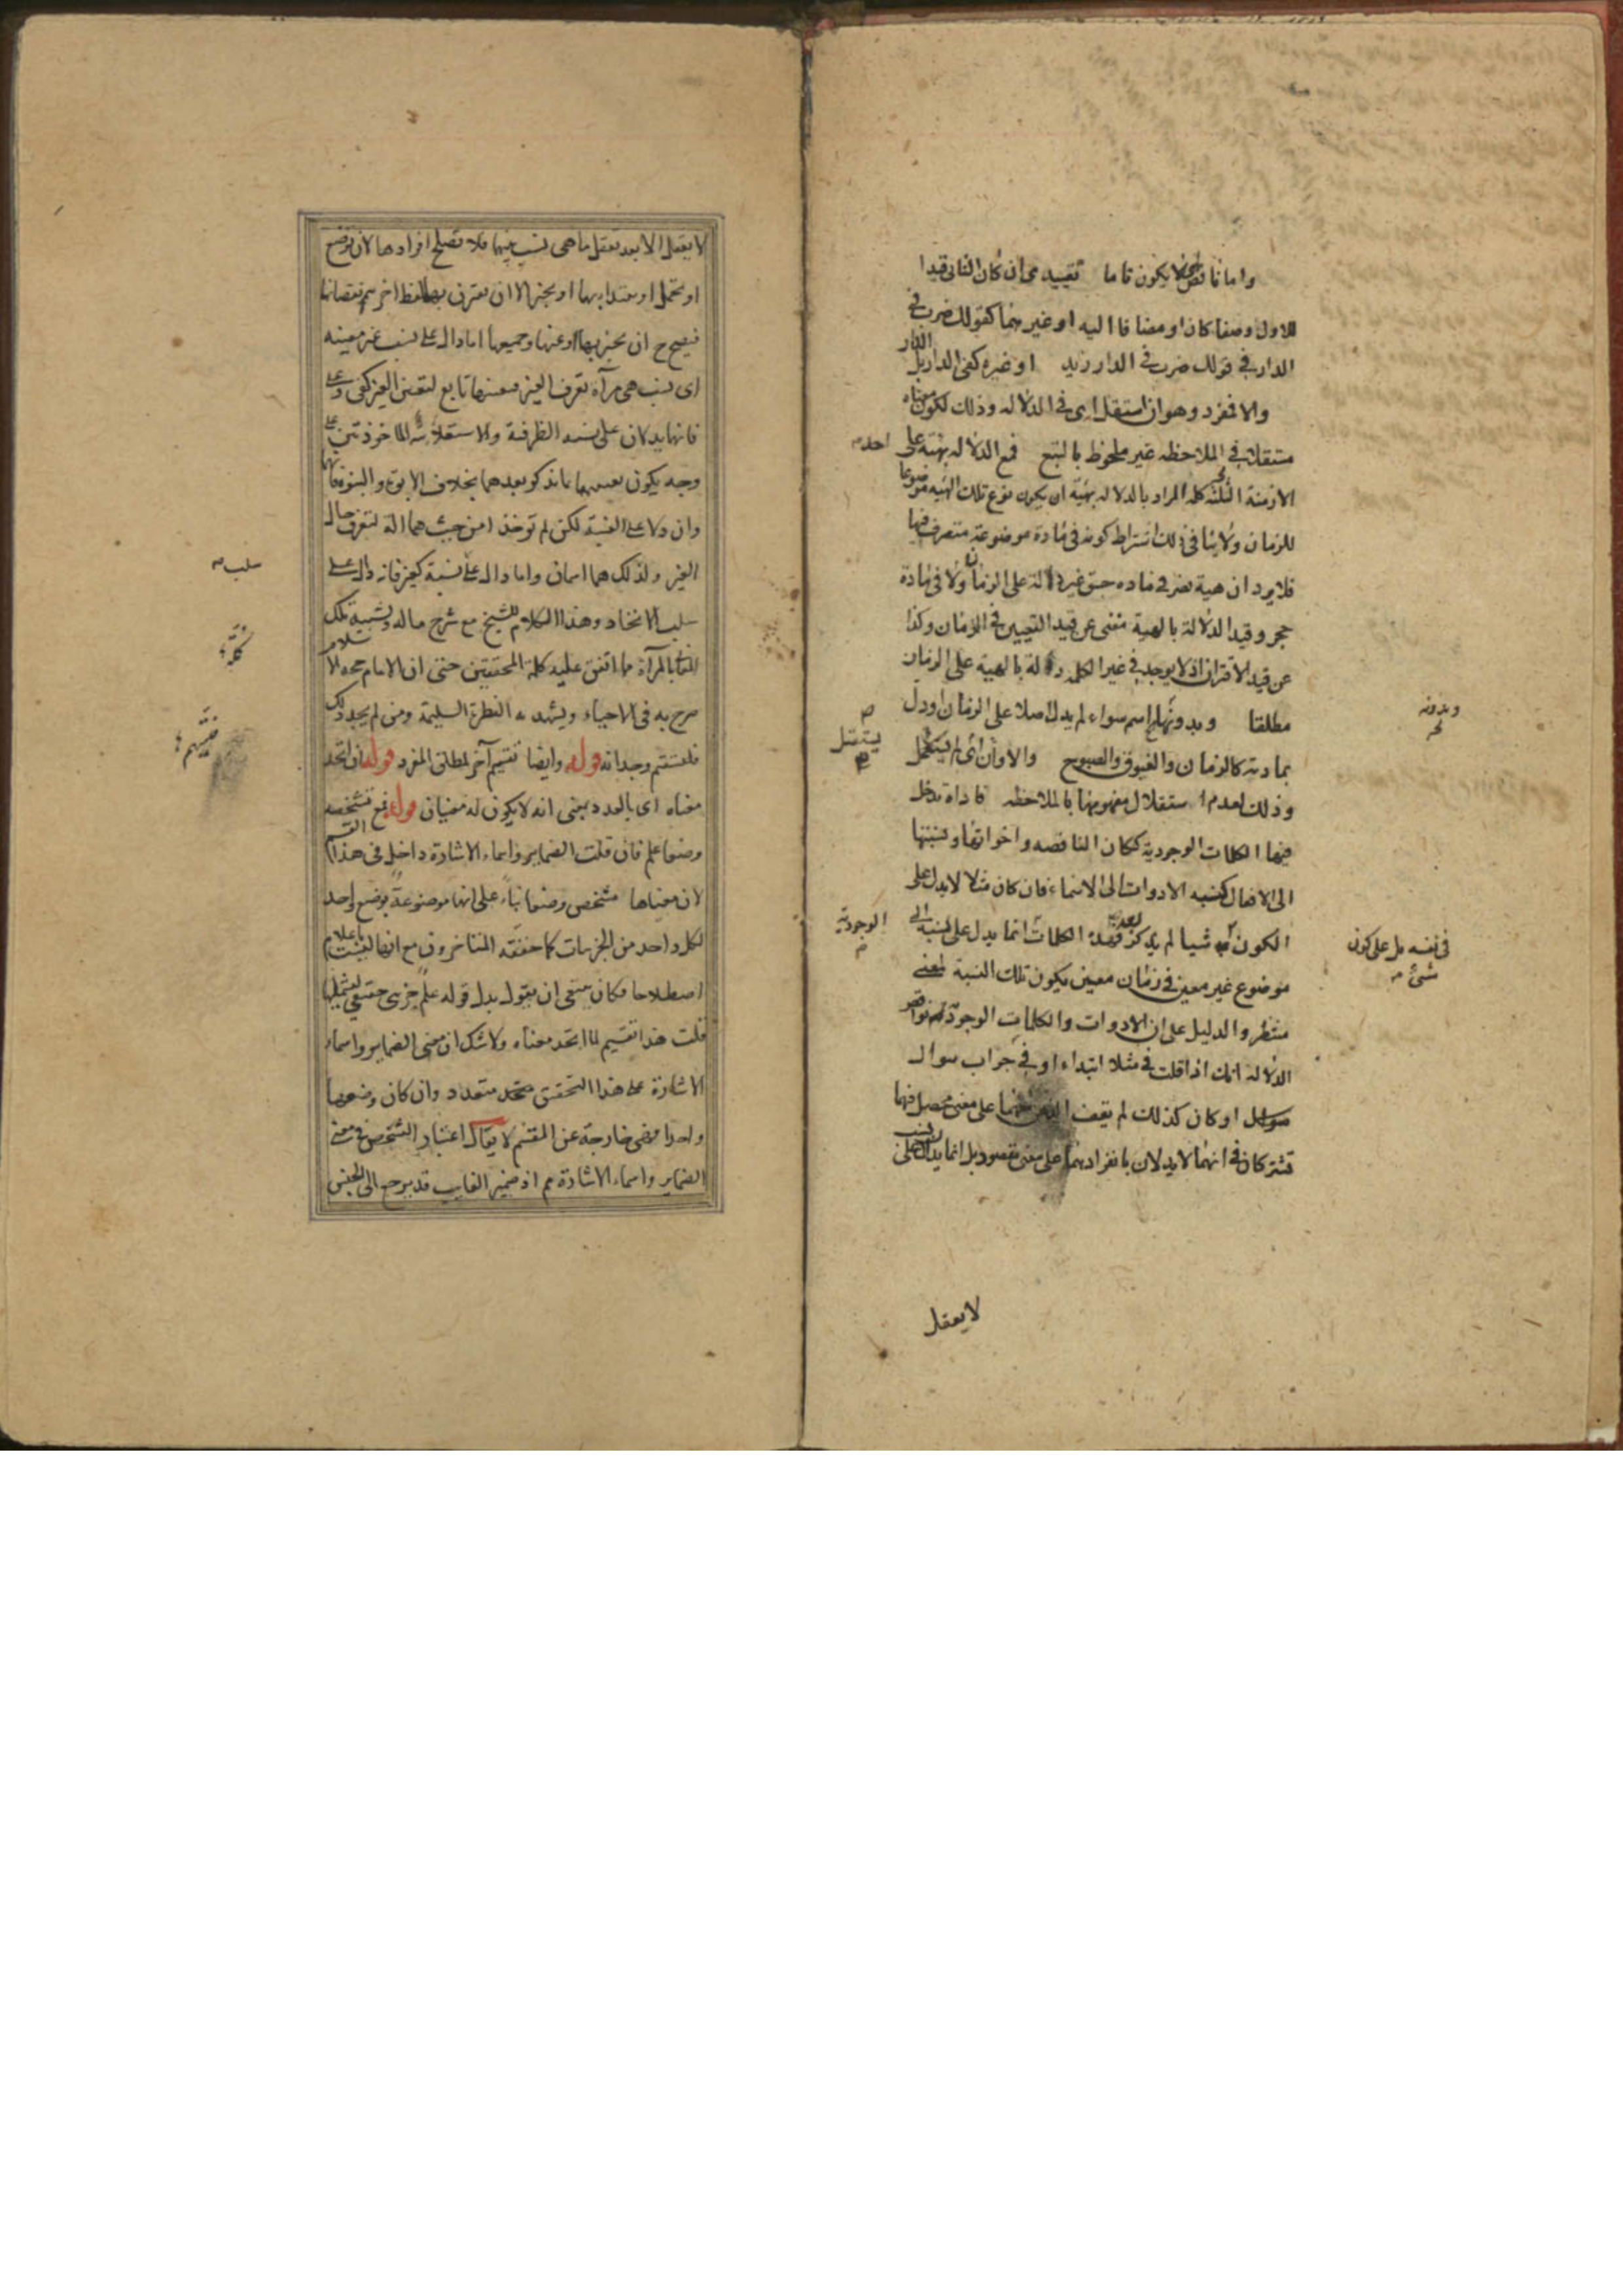 واما ناقص ان لا يكون تاما تقييدى ان كان الثانى قيدا
للاول وصفا كان او مضافا اليه او غيرهما كقولك ضرب فى
الدار فى قولك ضرب فى الدار زيد او غيره كفى الدار بل
والا فمفرد وهو ان استقل اى فى الدلالة وذلك لكون معناه
مستقلا فى الملاحظه غير ملحوظ بالتبع فمع الدلاله بهيئته على
احد
الازمنة الثلثة كلمه المراد بالدلاله بهيئة ان يكون نوع تلك الهيئه موضوعا
للزمان ولا ينافى ذلك اشتراط كونه فى مادة موضوعة متصرف فيها
فلا يرد ان هيئة نصر فى مادة جسق غير دالة على الزمان ولا فى مادة
حجر وقيد الدلالة بالهيئة مغنى عن قيد التعيين فى الزمان وكذا
عن قيد الاقتران اذ لا يوجد فى غير الكلمه دلالة بالهيئة على الزمان
مطلقا وبدونها اسم سواء لم يدل اصلا على الزمان او دل
وبدونه
بمادته كالزمان والغبوق والصبوح والا وان لم يستقل
يستقل
وذلك لعدم استقلال مفهومها بالملاحظه فاداة تدخل
فيها الكلمات الوجودية ككان الناقصه واخواتها ونسبتها
الى الافعال كنسبه الادوات الى الاسماء فان كان مثلا لا يدل على
الكون شيئا لم يذكر بعد فهذه الكلمات انما يدل على نسبة الى
الوجودية
فى نفسه بل على كون
شئ
موضوع غير معين فى زمان معين يكون تلك النسبة لمعنى
منتظر والدليل على ان الادوات والكلمات الوجودية نواقص
الدلاله انك اذا قلت فى مثلا ابتداء او فى جواب سوال
او كان كذلك لم يقف الذهن منهما على معنى محصل فهما
تشتركان فى انهما لا يدلان بانفرادهما على معنى مقصود بل انما يدلان على نسب
لا يعقل
لا يعقل الا بعد تعقل ما هى نسب بينها فلا تصلح افرادها لان توضع
او تحمل او يبتدا بها او يخبر الا ان يقترن بها لفظ اخر يتم نقصانها
فيصح ح ان يخبر بها او عنها وجميعها اما دال على نسب غير معينه
اى نسب هى مرآة تعرف الغير فتعينها تابع لتعين الغير كفى وعلى
فانهما يدلان على نسبه الظرفية والاستعلائية الماخوذتين على
وجه يكون تعينهما بما يذكر بعدهما بخلاف الابوة والبنوة فانهما
وان دلا على النسبة لكن لم توخذا من حيث هما الة لتعرف حال
الغير ولذلك هما اسمان واما دالة على نسبة كغير فانه دال على
سلب
سلب الاتخاد وهذا الكلام للشيخ مع شرح ما له وتشبيه تلك
بالمرآة مما اتفق عليه كلمة المحققين حتى ان الامام حجه الاسلام
صرح به فى الاحياء ويشهد به الفطرة السليمة ومن لم يجد ذلك
فليتهم وجدانه قوله وايضا تقسيم آخر لمطلق المفرد قوله ان اتحد
معناه اى بالعدد بمعنى انه لا يكون له معنيان قوله فمع تشخصه
وضعا علم فان قلت الضماير واسماء الاشارة داخل فى هذا القسم
لان معناها متشخص وضعا بناءً على انها موضوعة بوضع واحد
لكل واحد من الجزئيات كما حققه المتاخرون مع انها ليست باعلام
اصطلاحا فكان ينبغى ان يقول بدل قوله علم جزئى حقيقى ليشملها
قلت هذا تقسيم لما اتحد معناه ولا شك ان معنى الضماير واسماء
الاشارة على هذا التحقيق متعدد وان كان وضعها
واحدا فهى خارجة عن المقسم لا يقال اعتبار التشخص فى معنى
الضماير واسماء الاشارة مم اذ ضمير الغايب قد يرجع الى الجنس